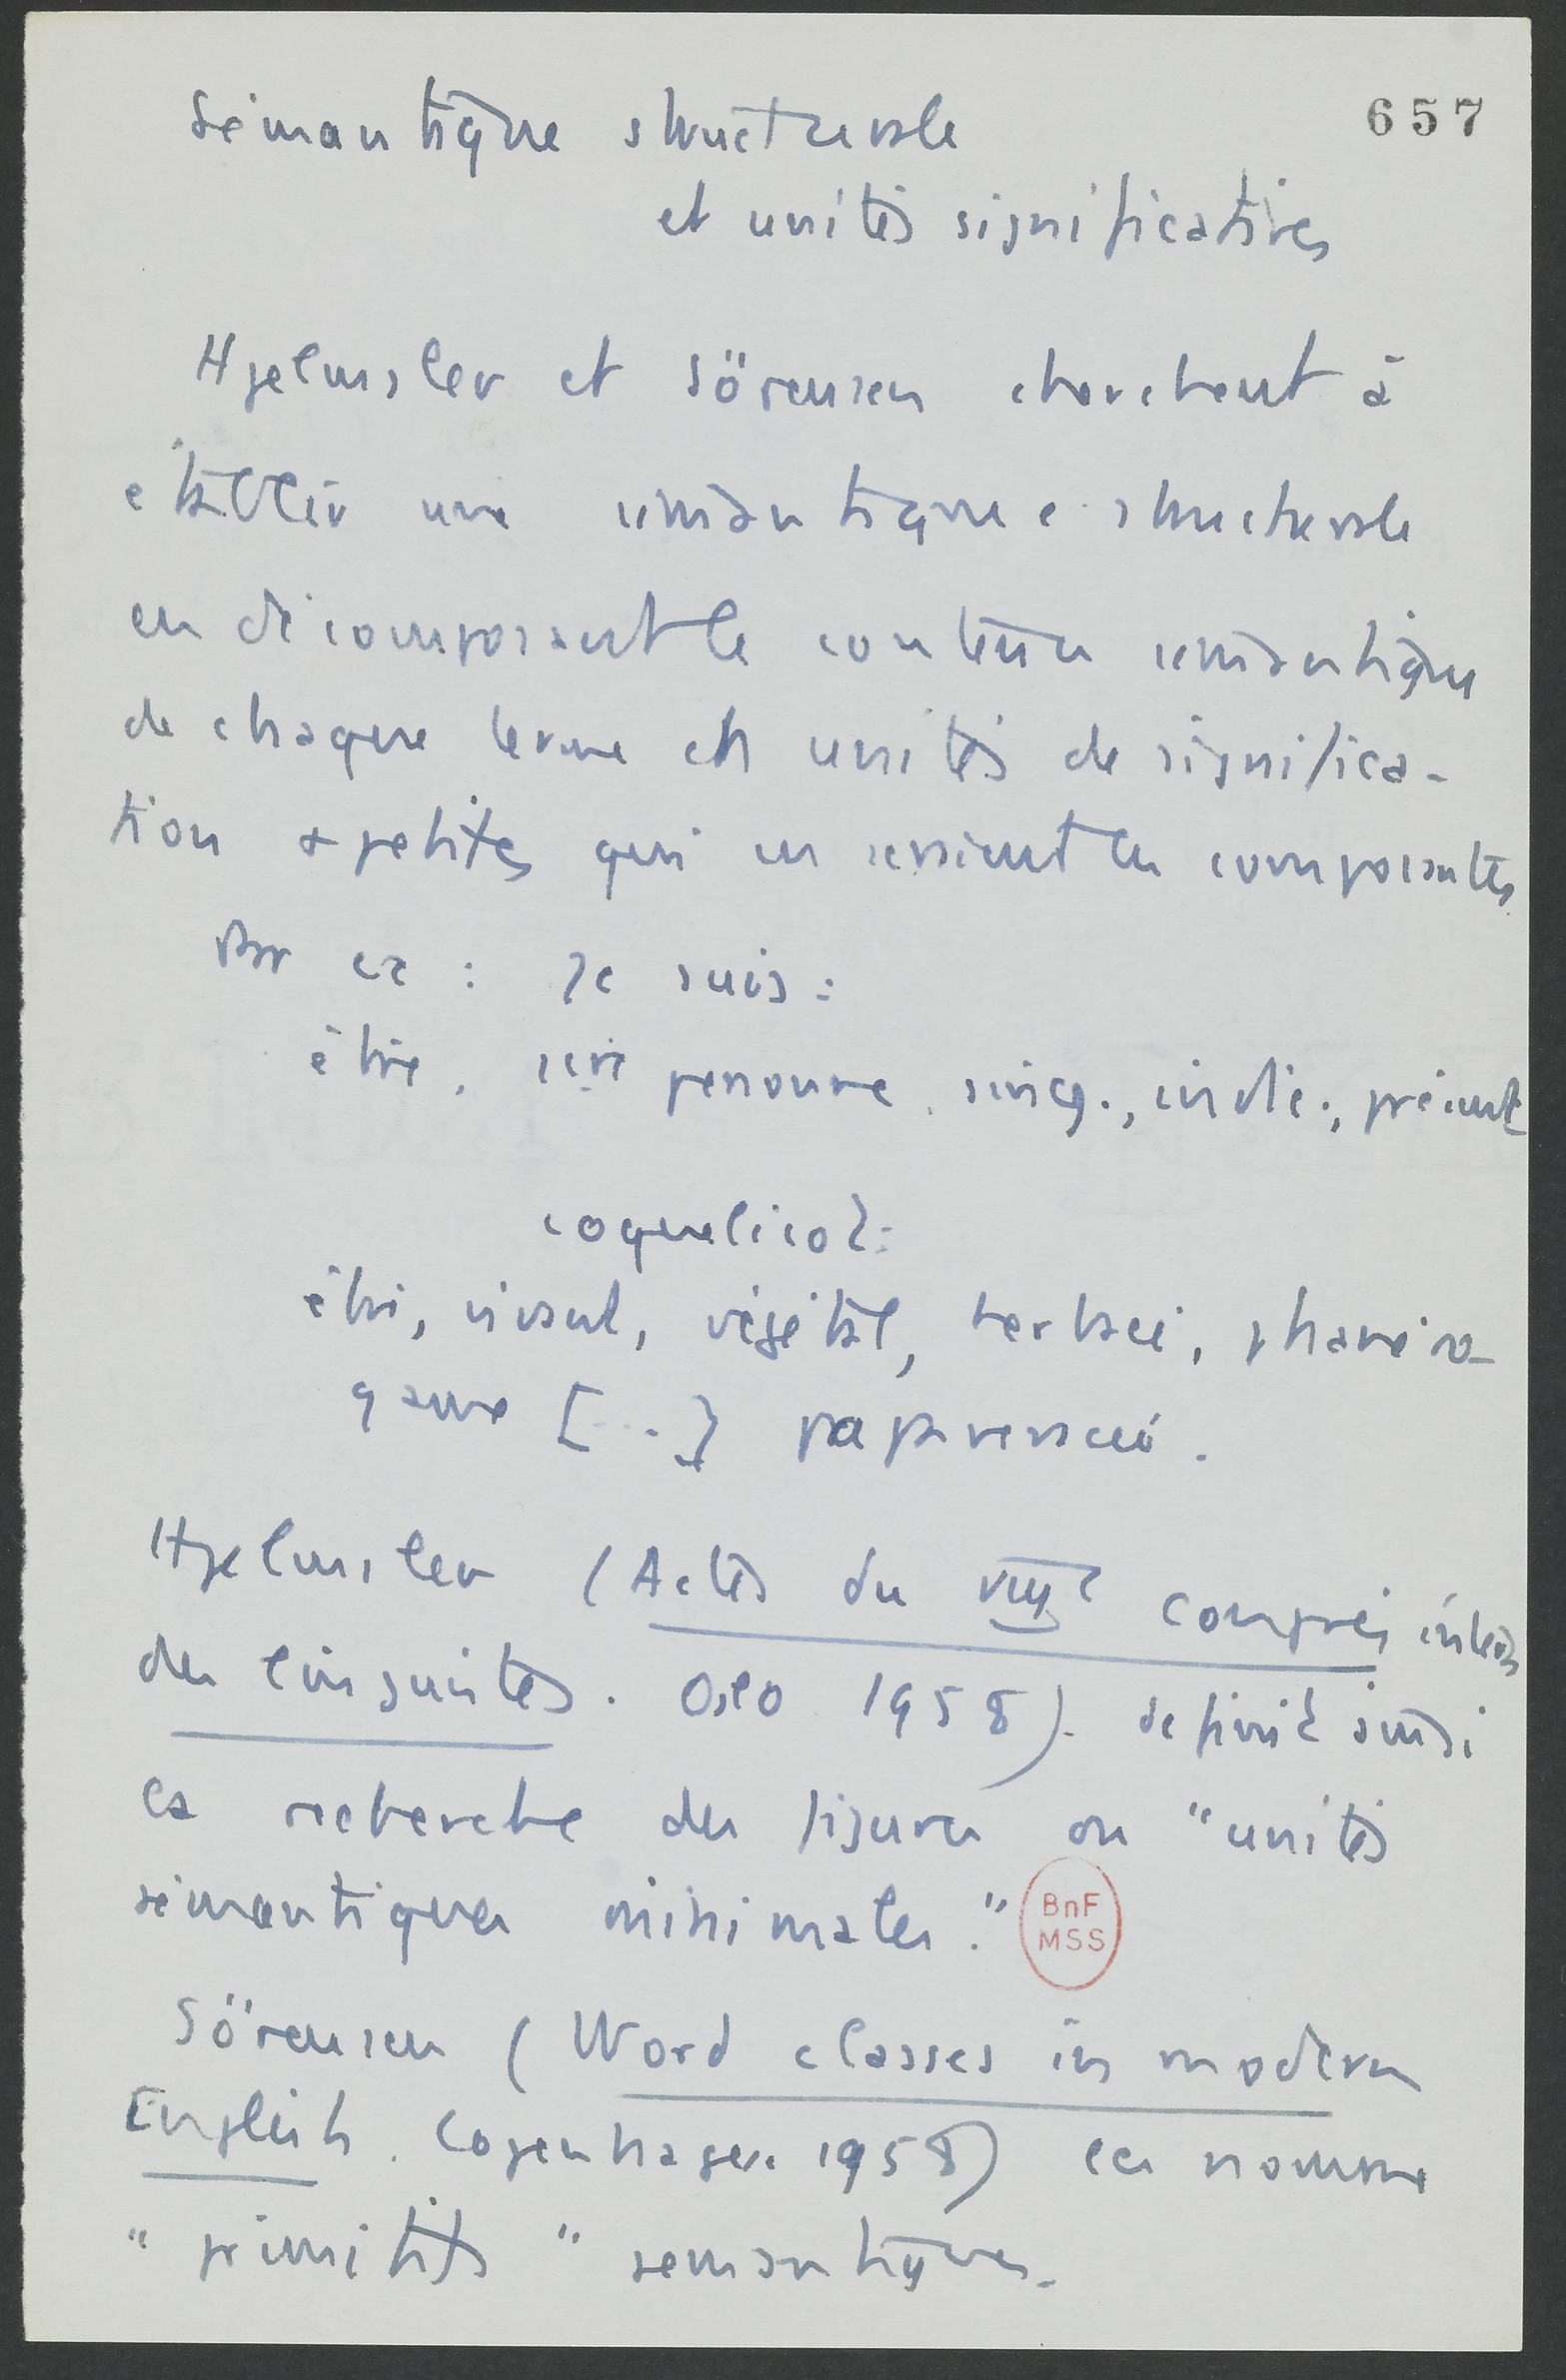 Sémantique structurale
657
et unités significatives
Hjelmslev et Sörensen cherchent à
établir une sémantique structurale
en décomposant le contenu sémantique
de chaque terme en unités de significa-
tion + petites qui en seraient les composantes
Par ex : Je suis :
être, 1ère personne, sing., indic., présent
coquelicot :
être, vivant, végétal, herbacé, phanéro-
game [...] papavéracée.
Hjelmslev (Actes du VIIIe Congrès intern
des linguistes. Oslo 1958). définit ainsi
la recherche des figures ou "unités
sémantiques minimales."
BnF
MSS
Sörensen (Word classes in modern
English. Copenhagen 1958) les nomme
"primitifs" sémantiques.